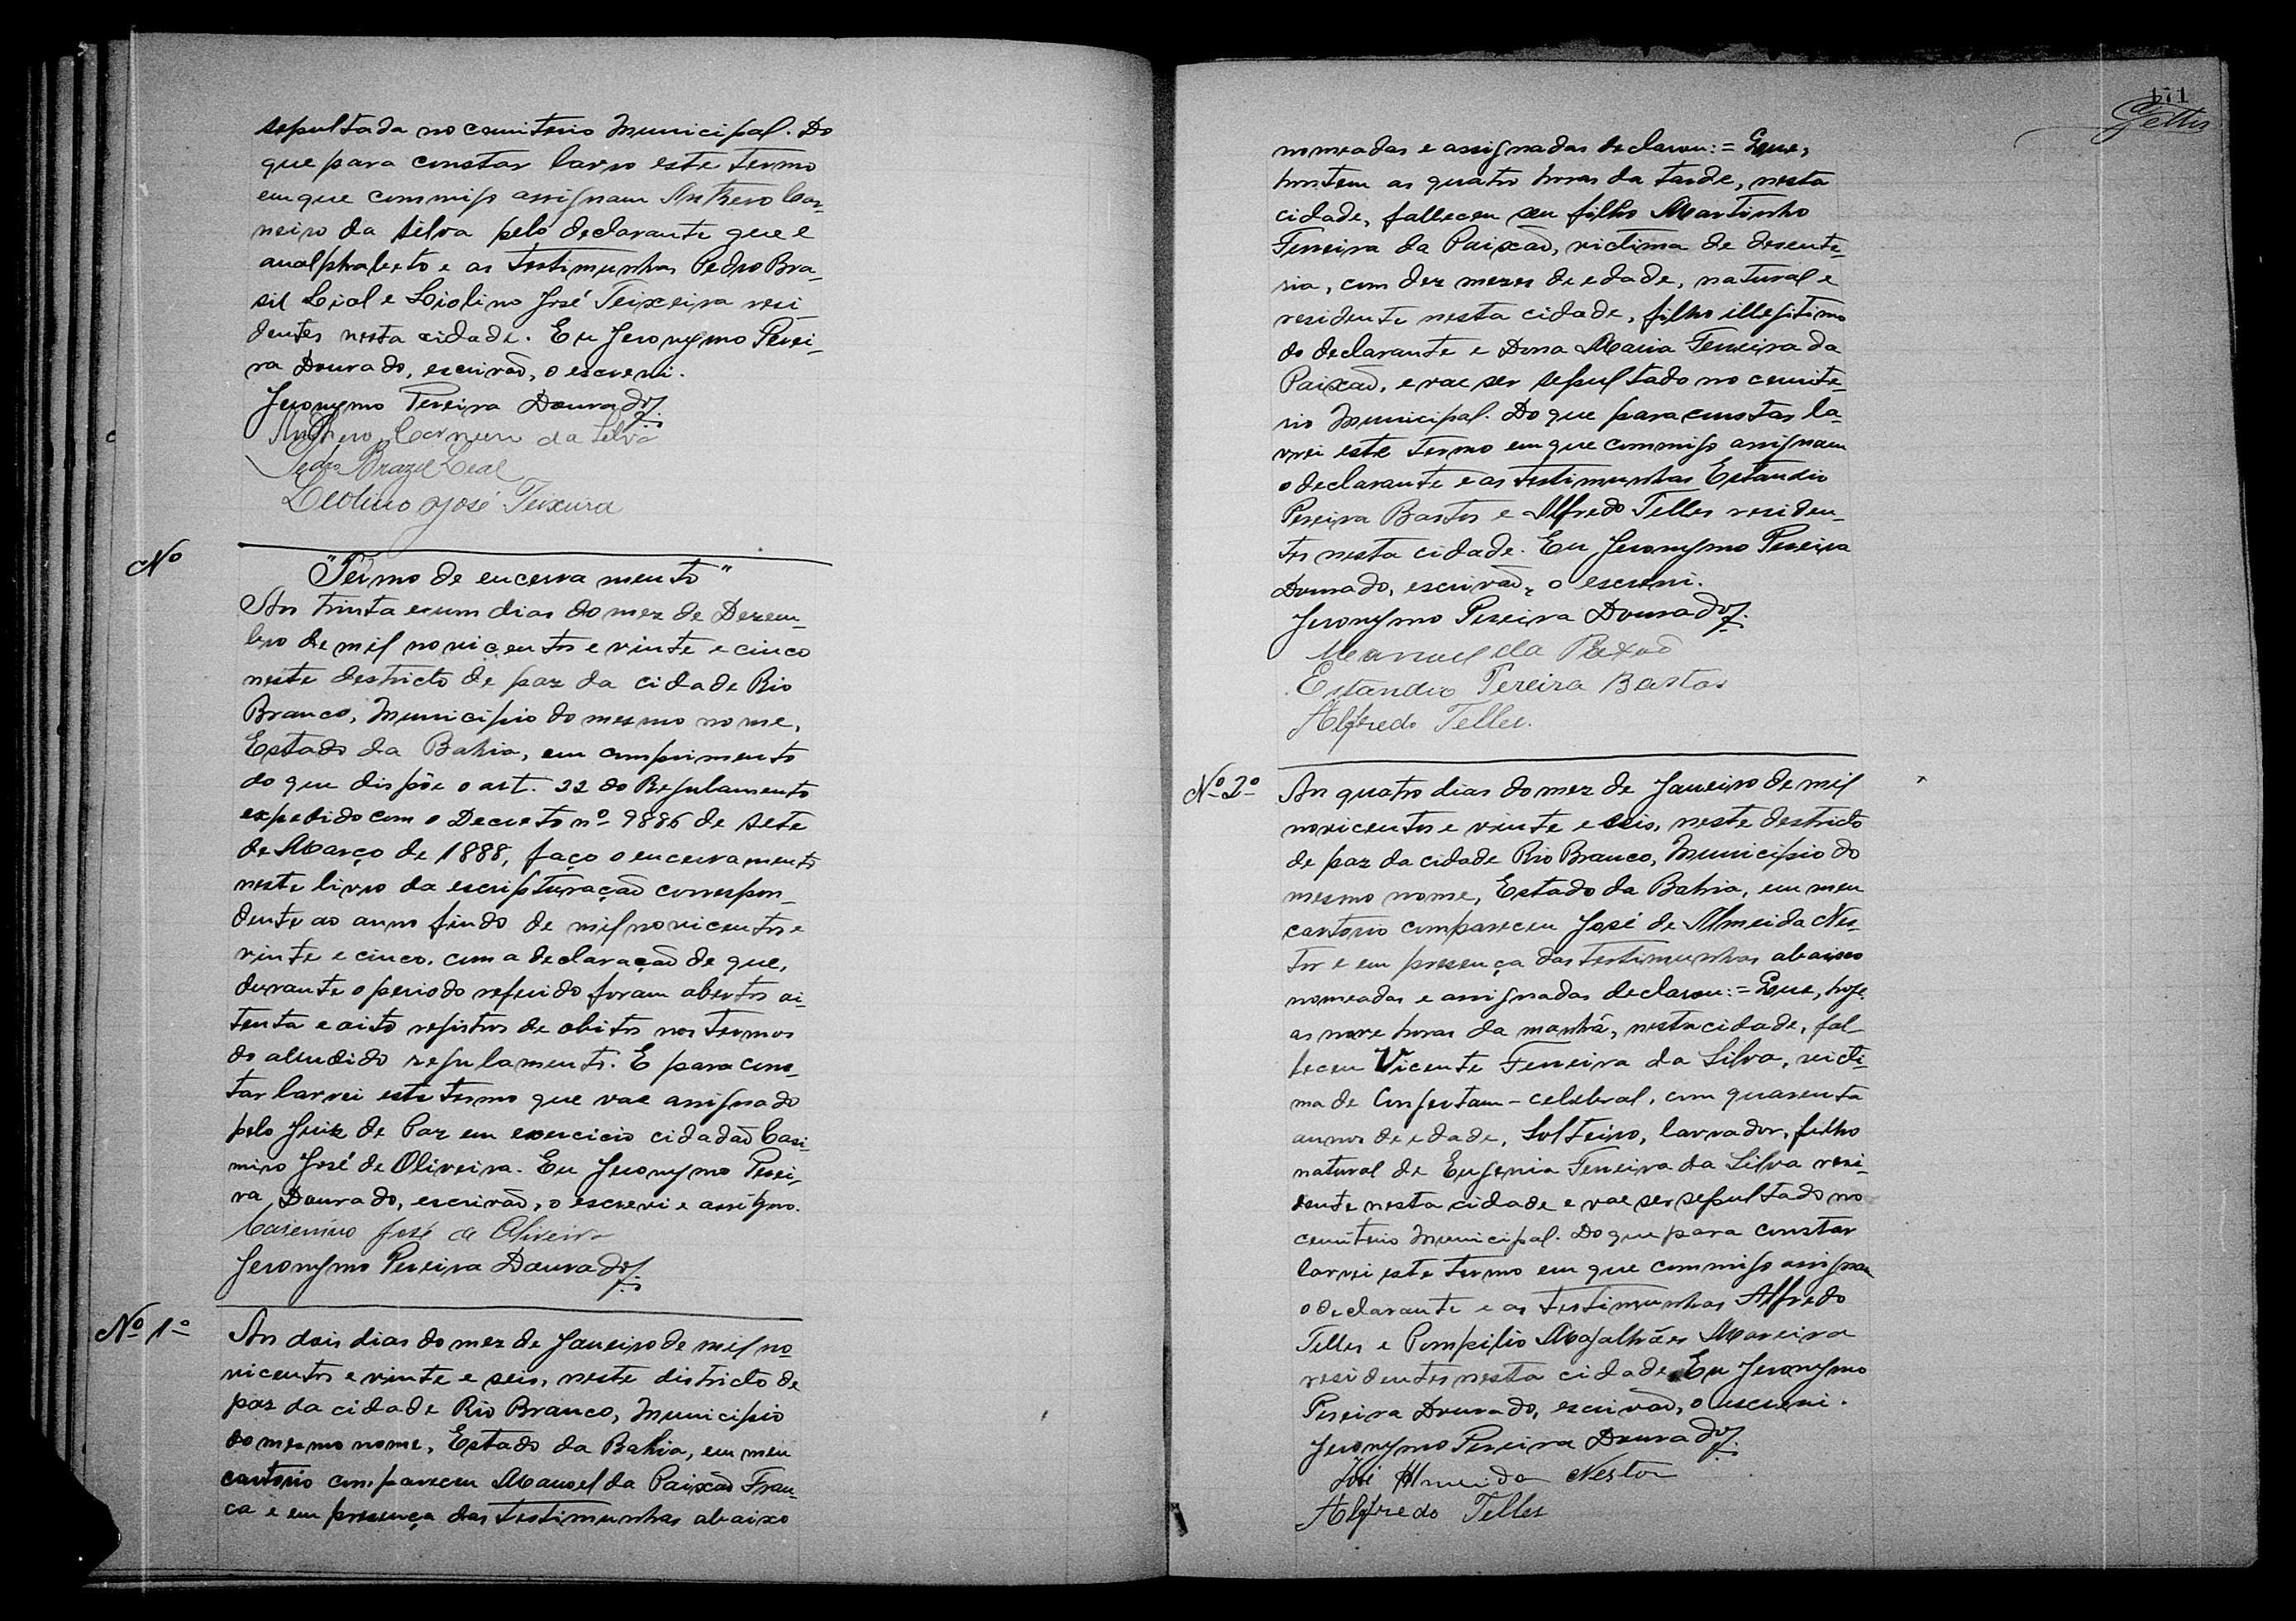 sepultada no cemiterio Municipal. Do
que para constar lavro este termo
em que commigo assignam Anthero Car-
neiro da Silva pelo declarante que é
analphabeto e as testimunhas Pedro Bra-
sil Lial e Liolino José Teixeira resi-
dentes nesta cidade. Eu Jeronymo Perei-
ra Dourado, escrivão, o escrevi.
Jeronymo Pereira Dourado
Anthero Carneiro da Silva
Pedro Brazil Leal
Leolino José Teixeira
Nº
"Termo de encerramento"
Aos trinta e um dias do mez de Dezem-
bro de mil novicentos e vinte e cinco
neste destricto de paz da cidade Rio
Branco, Municipio do mesmo nome,
Estado da Bahia, em cumprimento
do que dispõe o art. 22 do Regulamento
expedido com o Decreto nº 9886 de sete
de Março de 1888, faço o encerramento
neste livro da escripturação correspon-
dente ao anno findo de mil novicentos e
vinte e cinco, com a declaração de que,
durante o periodo referido foram abertos oi-
tenta e oito registros de obitos nos termos
do alludido regulamento. E para cons-
tar lavrei este termo que vae assignado
pelo Juiz de Paz em exercicio cidadão Casi-
miro José de Oliveira. Eu Jeronymo Perei-
ra Dourado, escrivão, o escrevi e assigno.
Casemiro José de Oliveira
Jeronymo Pereira Dourado
Nº 1º
Aos dois dias do mez de Janeiro de mil no-
vicentos e vinte e seis, neste districto de
paz da cidade Rio Branco, Municipio
do mesmo nome, Estado da Bahia, em meu
cartorio compareceu Manoel da Paixão Fran-
ca e em presença das testimunhas abaixo
171
Telles
nomeadas e assignadas declarou:= Que,
hontem as quatro horas da tarde, nesta
cidade, falleceu seu filho Martinho
Ferreira da Paixão, victima de desente-
ria, com dez mezes de edade, natural e
residente nesta cidade, filho illegitimo
do declarante e Dona Maria Ferreira da
Paixão, e vae ser sepultado no cemite-
rio Municipal. Do que para constar la-
vrei este termo em que commigo assignam
o declarante e as testimunhas Estandio
Pereira Bastos e Alfredo Telles residen-
tes nesta cidade. Eu Jeronymo Pereira
Dourado, escrivão, o escrevi.
Jeronymo Pereira Dourado
Manuel da Paixão
Estandio Pereira Bastos
Alfredo Telles.
Nº 2º
Aos quatro dias do mez de Janeiro de mil
novicentos e vinte e seis, neste destricto
de paz da cidade Rio Branco, Municipio do
mesmo nome, Estado da Bahia, em meu
cartorio compareceu José de Almeida Nes-
tor e em presença das testimunhas abaixo
nomeadas e assignadas declarou:= Que, hoje
as nove horas da manhã, nesta cidade, fal-
leceu Vicente Ferreira da Silva, victi-
ma de Congestam-celebral, com quarenta
annos de edade, Solteiro, lavrador, filho
natural de Eugenia Ferreira da Silva resi-
dente nesta cidade e vae ser sepultado no
cemiterio Municipal. Do que para constar
lavrei este termo em que commigo assignam
o declarante e as testimunhas Alfredo
Telles e Pompilio Magalhães Moreira
residentes nesta cidade. Eu Jeronymo
Pereira Dourado, escrivão, o escrevi.
Jeronymo Pereira Dourado
José Almeida Nestor
Alfredo Telles